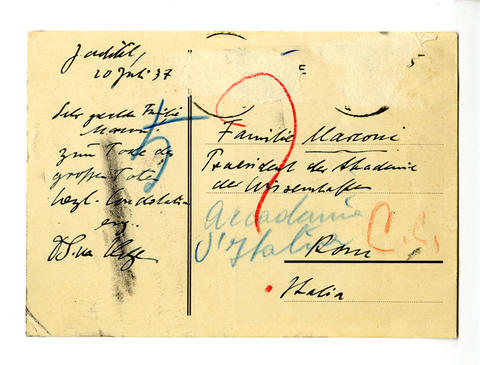 20 Juli 37
Sehr geehrte Familie
Marconi
zum Tode des
großen Toten
herzl. Condolation
Familie Marconi
Praesident der Akademie
der Wissenshaften
Accademia
d'Italia
Rom
C.S.
Italia
5